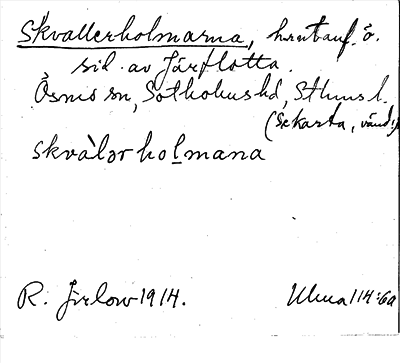 Skvallerholmarna, hrnt auf. ö.
sid. av Järflotta.
Ösmo sn, Sotholms hd, Sthms l.
(Se karta, vänd!)
skvàlər holmana
R. Jirlow 1914. Ulma 114:6a